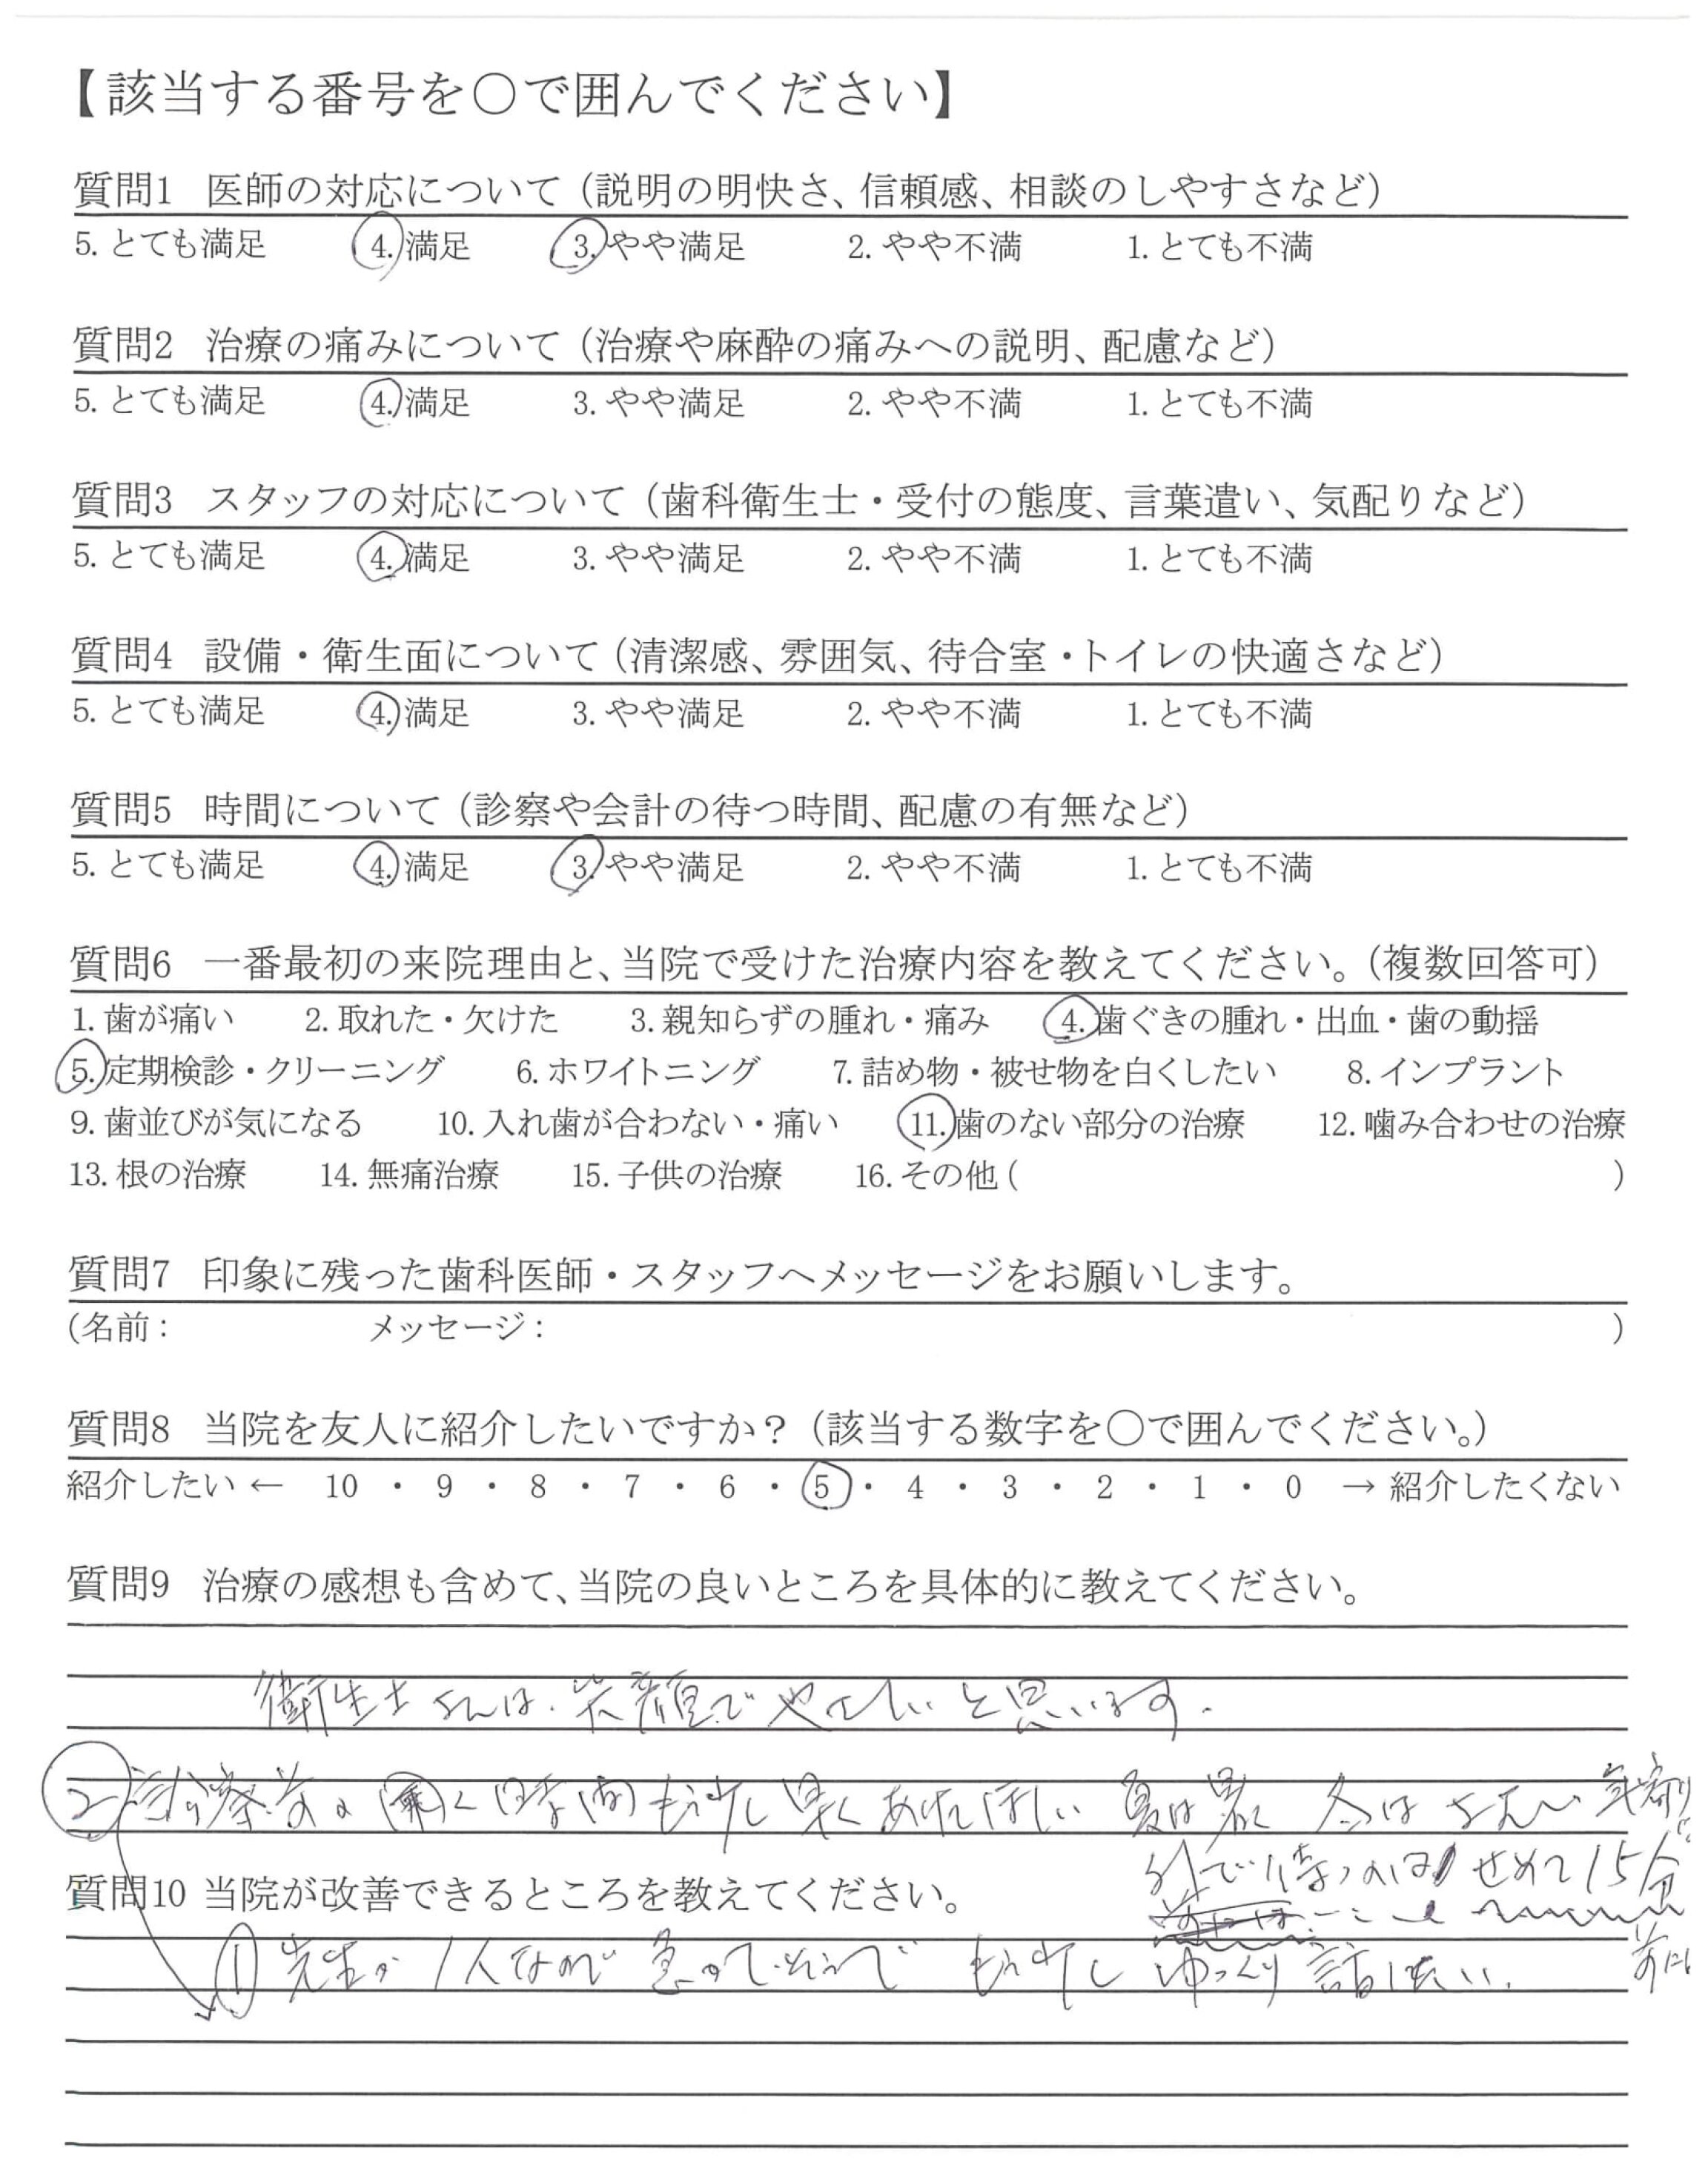 【該当する番号を○で囲んでください】
質問1 医師の対応について（説明の明快さ、信頼感、相談のしやすさなど）
5. とても満足 4. 満足 3. やや満足 2. やや不満 1. とても不満
質問2 治療の痛みについて（治療や麻酔の痛みへの説明、配慮など）
5. とても満足 4. 満足 3. やや満足 2. やや不満 1. とても不満
質問3 スタッフの対応について（歯科衛生士・受付の態度、言葉遣い、気配りなど）
5. とても満足 4. 満足 3. やや満足 2. やや不満 1. とても不満
質問4 設備・衛生面について（清潔感、雰囲気、待合室・トイレの快適さなど）
5. とても満足 4. 満足 3. やや満足 2. やや不満 1. とても不満
質問5 時間について（診察や会計の待つ時間、配慮の有無など）
5. とても満足 4. 満足 3. やや満足 2. やや不満 1. とても不満
質問6 一番最初の来院理由と、当院で受けた治療内容を教えてください。（複数回答可）
1. 歯が痛い 2. 取れた・欠けた 3. 親知らずの腫れ・痛み 4. 歯ぐきの腫れ・出血・歯の動揺
5. 定期検診・クリーニング 6. ホワイトニング 7. 詰め物・被せ物を白くしたい 8. インプラント
9. 歯並びが気になる 10. 入れ歯が合わない・痛い 11. 歯のない部分の治療 12. 噛み合わせの治療
13. 根の治療 14. 無痛治療 15. 子供の治療 16. その他 ( )
質問7 印象に残った歯科医師・スタッフへメッセージをお願いします。
(名前： メッセージ： )
質問8 当院を友人に紹介したいですか？（該当する数字を○で囲んでください。）
紹介したい ← 10 ・ 9 ・ 8 ・ 7 ・ 6 ・ 5 ・ 4 ・ 3 ・ 2 ・ 1 ・ 0 → 紹介したくない
質問9 治療の感想も含めて、当院の良いところを具体的に教えてください。
衛生士さんは、笑顔でやさしいと思います.
② 診療前の開く時間もう少し早くあけてほしい 夏は暑く 冬はさむい 年寄り
外で待つのは せめて15分
前に
質問10 当院が改善できるところを教えてください。
① 先生が1人なので 急がしそうで もう少し ゆっくり 話したい.